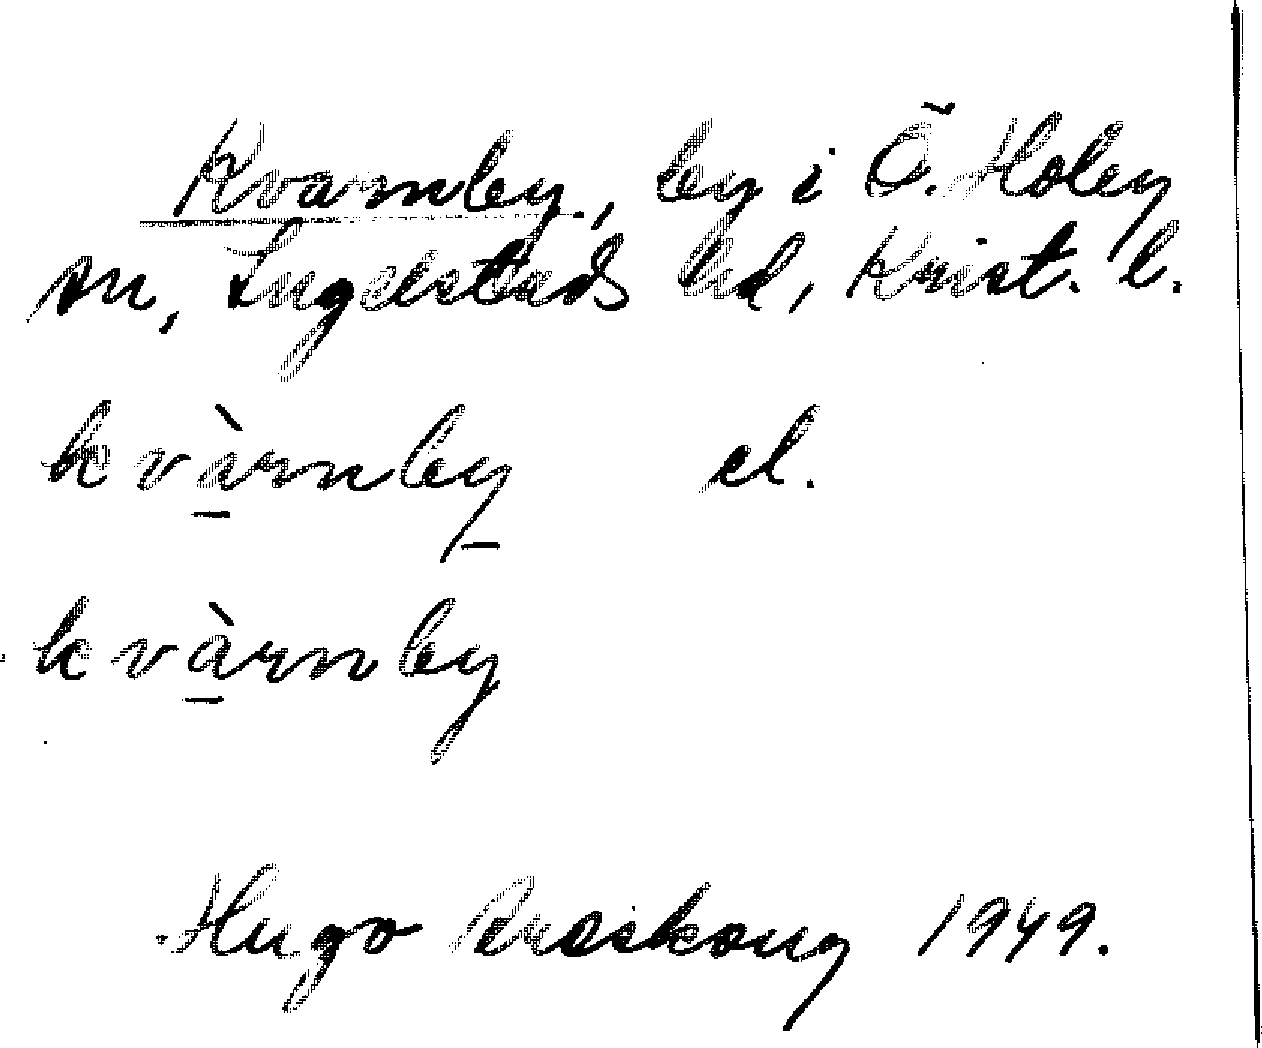 Kvarnby, by i Ö. Hoby
sn, Ingelstads hd, Krist. l.
kvàrnby el.
kvàrnby
Hugo Areskoug 1949.